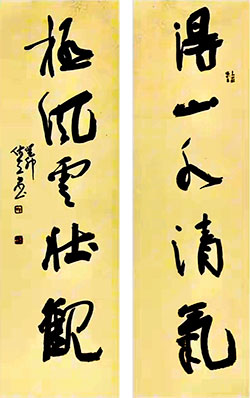 得山水清氣
極風雲壯觀
癸卯